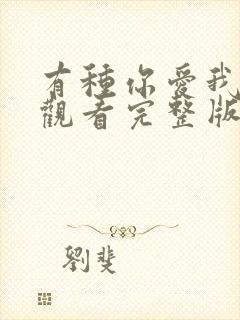 有種你愛我
觀看完整版
劉斐